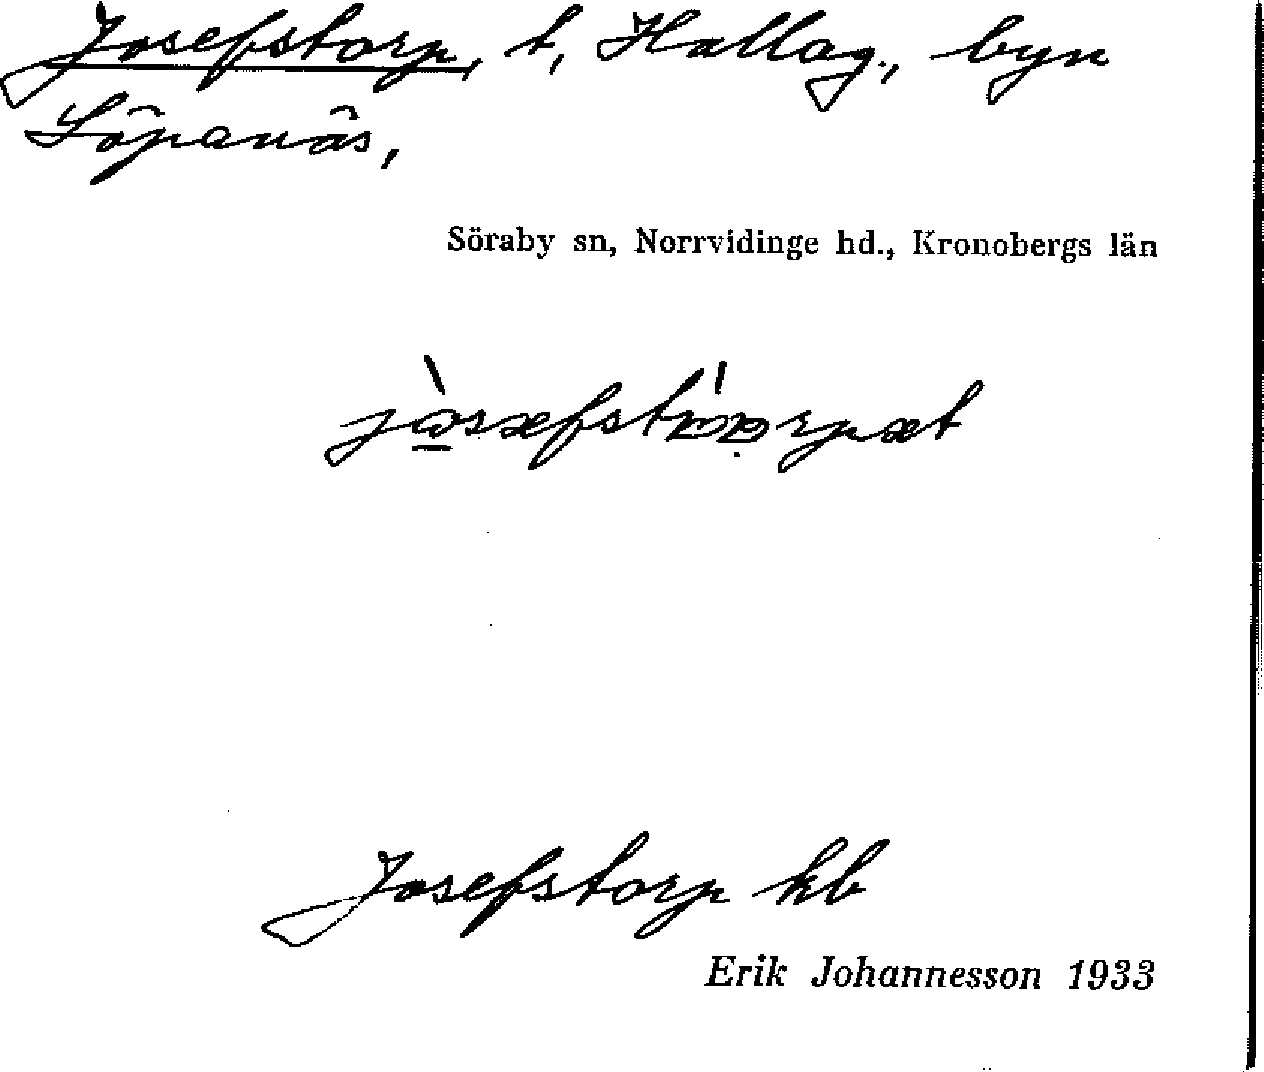 Josefstorp, t, Hallag., byn
Löpanäs,
Söraby sn, Norrvidinge hd., Kronobergs län
Josefstorp kb
Erik Johannesson 1933